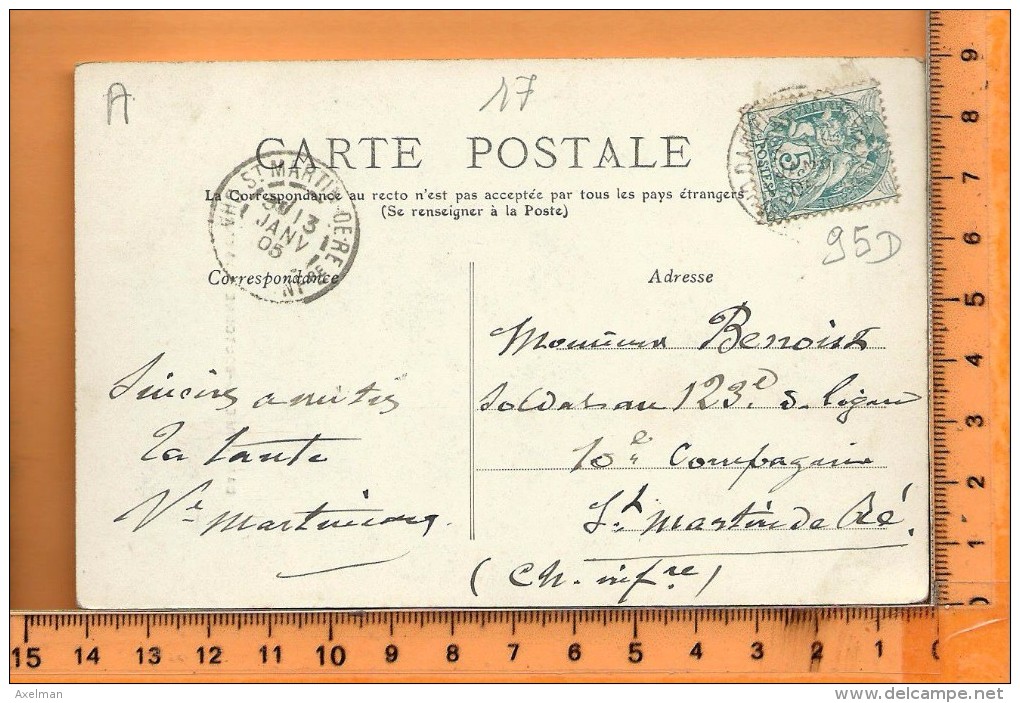 A
17
CARTE POSTALE
La Correspondance au recto n'est pas acceptée par tous les pays étrangers
(Se renseigner à la Poste)
ST MARTIN DE RÉ
13
JANV
05
POSTES
5
95D
Correspondance
Adresse
Monsieur Benoist
Soldat au 123e d. ligne
10e Compagnie
St Martin de Ré
(Ch. infre)
Sincères amitiés
Ta tante
Ve
15 14 13 12 11 10 9 8 7 6 5 4 3 2 1 0
9 8 7 6 5 4 3 2 1 0
Axelman
www.delcampe.net